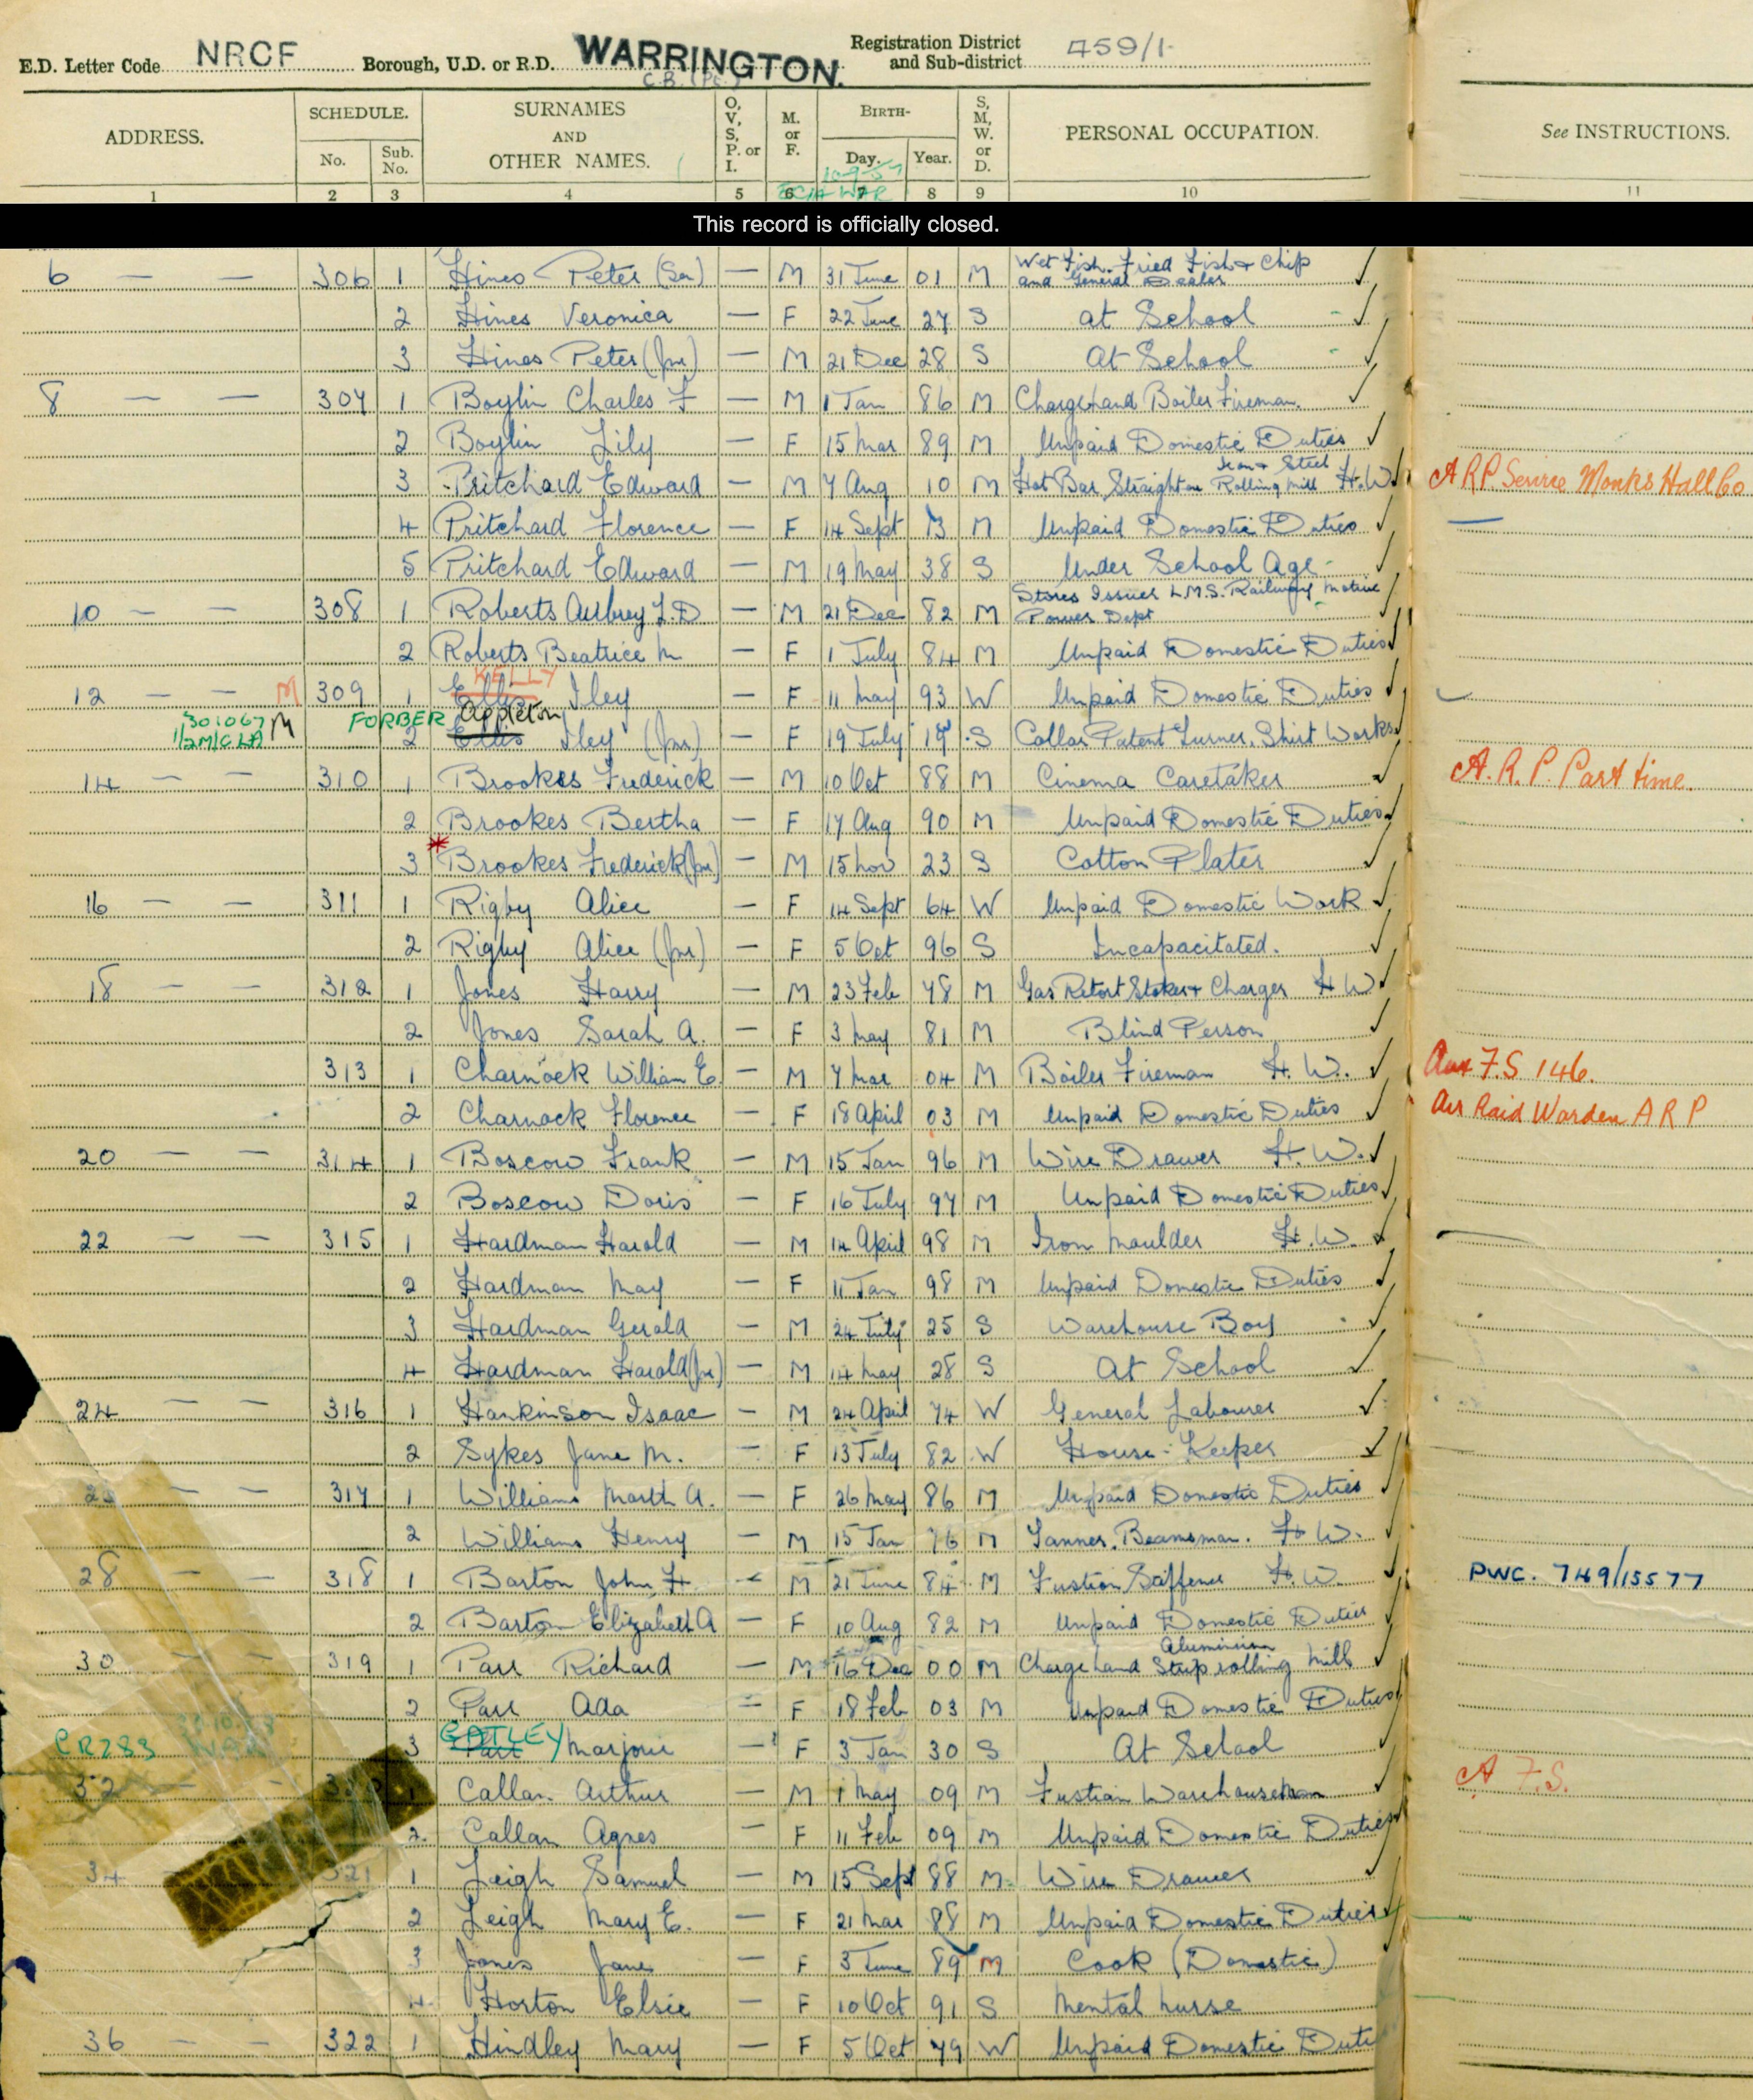 E.D. Letter Code NRCF Borough, U.D. or R.D. WARRINGTON. Registration District and Sub-district 459/1
C.B. (Pt.)
ADDRESS. SCHEDULE. No. Sub. No. SURNAMES AND OTHER NAMES. O, V, S, P. or I. M. or F. BIRTH- Day. Year. S, M, W. or D. PERSONAL OCCUPATION. See INSTRUCTIONS.
1 2 3 4 5 6 7 8 9 10 11
This record is officially closed.
6 — — 306 1 Hines Peter (Sen) — M 31 June 01 M Wet Fish. Fried Fish & Chip and General Dealer ✓
2 Hines Veronica — F 22 June 27 S at School ✓
3 Hines Peter (Jnr) — M 21 Dec 28 S At School ✓
8 — — 307 1 Boylin Charles F — M 1 Jan 86 M Chargehand Boiler Fireman. ✓
2 Boylin Lily — F 15 Mar 89 M Unpaid Domestic Duties ✓
3 Pritchard Edward — M 7 Aug 10 M Hot Bar Straightner Iron & Steel Rolling Mill H.W. ARP Service Monks Hall Co
4 Pritchard Florence — F 14 Sept 13 M Unpaid Domestic Duties ✓ —
5 Pritchard Edward — M 19 May 38 S Under School Age ✓
10 — — 308 1 Roberts Aubrey L.D — M 21 Dec 82 M Stores Issuer L.M.S. Railway Motive Power Dept ✓
2 Roberts Beatrice M — F 1 July 84 M Unpaid Domestic Duties ✓
KELLY
12 — — M 309 1 Ellis Iley — F 11 May 93 W Unpaid Domestic Duties ✓
301067 M FORBER Appleton
2 Ellis Iley (Jnr) — F 19 July 19 S Collar Patent Turner, Shirt Works ✓
14 — — 310 1 Brookes Frederick — M 10 Oct 88 M Cinema Caretaker ✓ A.R.P. Part time.
2 Brookes Bertha — F 17 Aug 90 M Unpaid Domestic Duties ✓
* 3 Brookes Frederick (Jnr) — M 15 Nov 23 S Cotton Plater ✓
16 — — 311 1 Rigby Alice — F 14 Sept 64 W Unpaid Domestic Work ✓
2 Rigby Alice (Jnr) — F 5 Oct 96 S Incapacitated. ✓
18 — — 312 1 Jones Harry — M 23 Feb 78 M Gas Retort Stoker & Charger H W ✓
2 Jones Sarah A. — F 3 May 81 M Blind Person ✓
313 1 Charnock William E. — M 7 Mar 04 M Boiler Fireman H.W. ✓ Aux F.S 146.
2 Charnock Florence — F 18 April 03 M Unpaid Domestic Duties ✓ Air Raid Warden A R P
20 — — 314 1 Boscow Frank — M 15 Jan 96 M Wire Drawer H.W. ✓
2 Boscow Doris — F 16 July 97 M Unpaid Domestic Duties ✓
22 — — 315 1 Hardman Harold — M 14 April 98 M Iron Moulder H.W. ✓
2 Hardman May — F 11 Jan 98 M Unpaid Domestic Duties ✓
3 Hardman Gerald — M 24 July 25 S Warehouse Boy ✓
4 Hardman Harold (Jnr) — M 14 May 28 S At School ✓
24 — — 316 1 Hankinson Isaac — M 24 April 74 W General Labourer ✓
2 Sykes Jane M. — F 13 July 82 W House-Keeper ✓
— — 317 1 Williams Marth A. — F 26 May 86 M Unpaid Domestic Duties ✓
2 Williams Henry — M 15 Jan 76 M Tanner, Beamsman. H.W. ✓
28 — — 318 1 Barton John H. — M 21 June 84 M Fustian Stiffener H.W. ✓ PWC. 749/15577
2 Barton Elizabeth A — F 10 Aug 82 M Unpaid Domestic Duties ✓
30 — — 319 1 Parr Richard — M 16 Dec 00 M Chargehand Aluminium Strip rolling Mill ✓
2 Parr Ada — F 18 Feb 03 M Unpaid Domestic Duties ✓
CR283 3 Parr GATLEY Marjorie — F 3 Jan 30 S At School
32 — — 1 Callan Arthur — M 1 May 09 M Fustian Warehouseman ✓ A.F.S.
2 Callan Agnes — F 11 Feb 09 M Unpaid Domestic Duties ✓
34 — 321 1 Leigh Samuel — M 15 Sept 88 M Wire Drawer ✓
2 Leigh Mary E. — F 21 Mar 88 M Unpaid Domestic Duties ✓
3 Jones Jane — F 3 June 89 M Cook (Domestic)
4 Horton Elsie — F 10 Oct 91 S Mental Nurse
36 — — 322 1 Hindley Mary — F 5 Oct 79 W Unpaid Domestic Duti